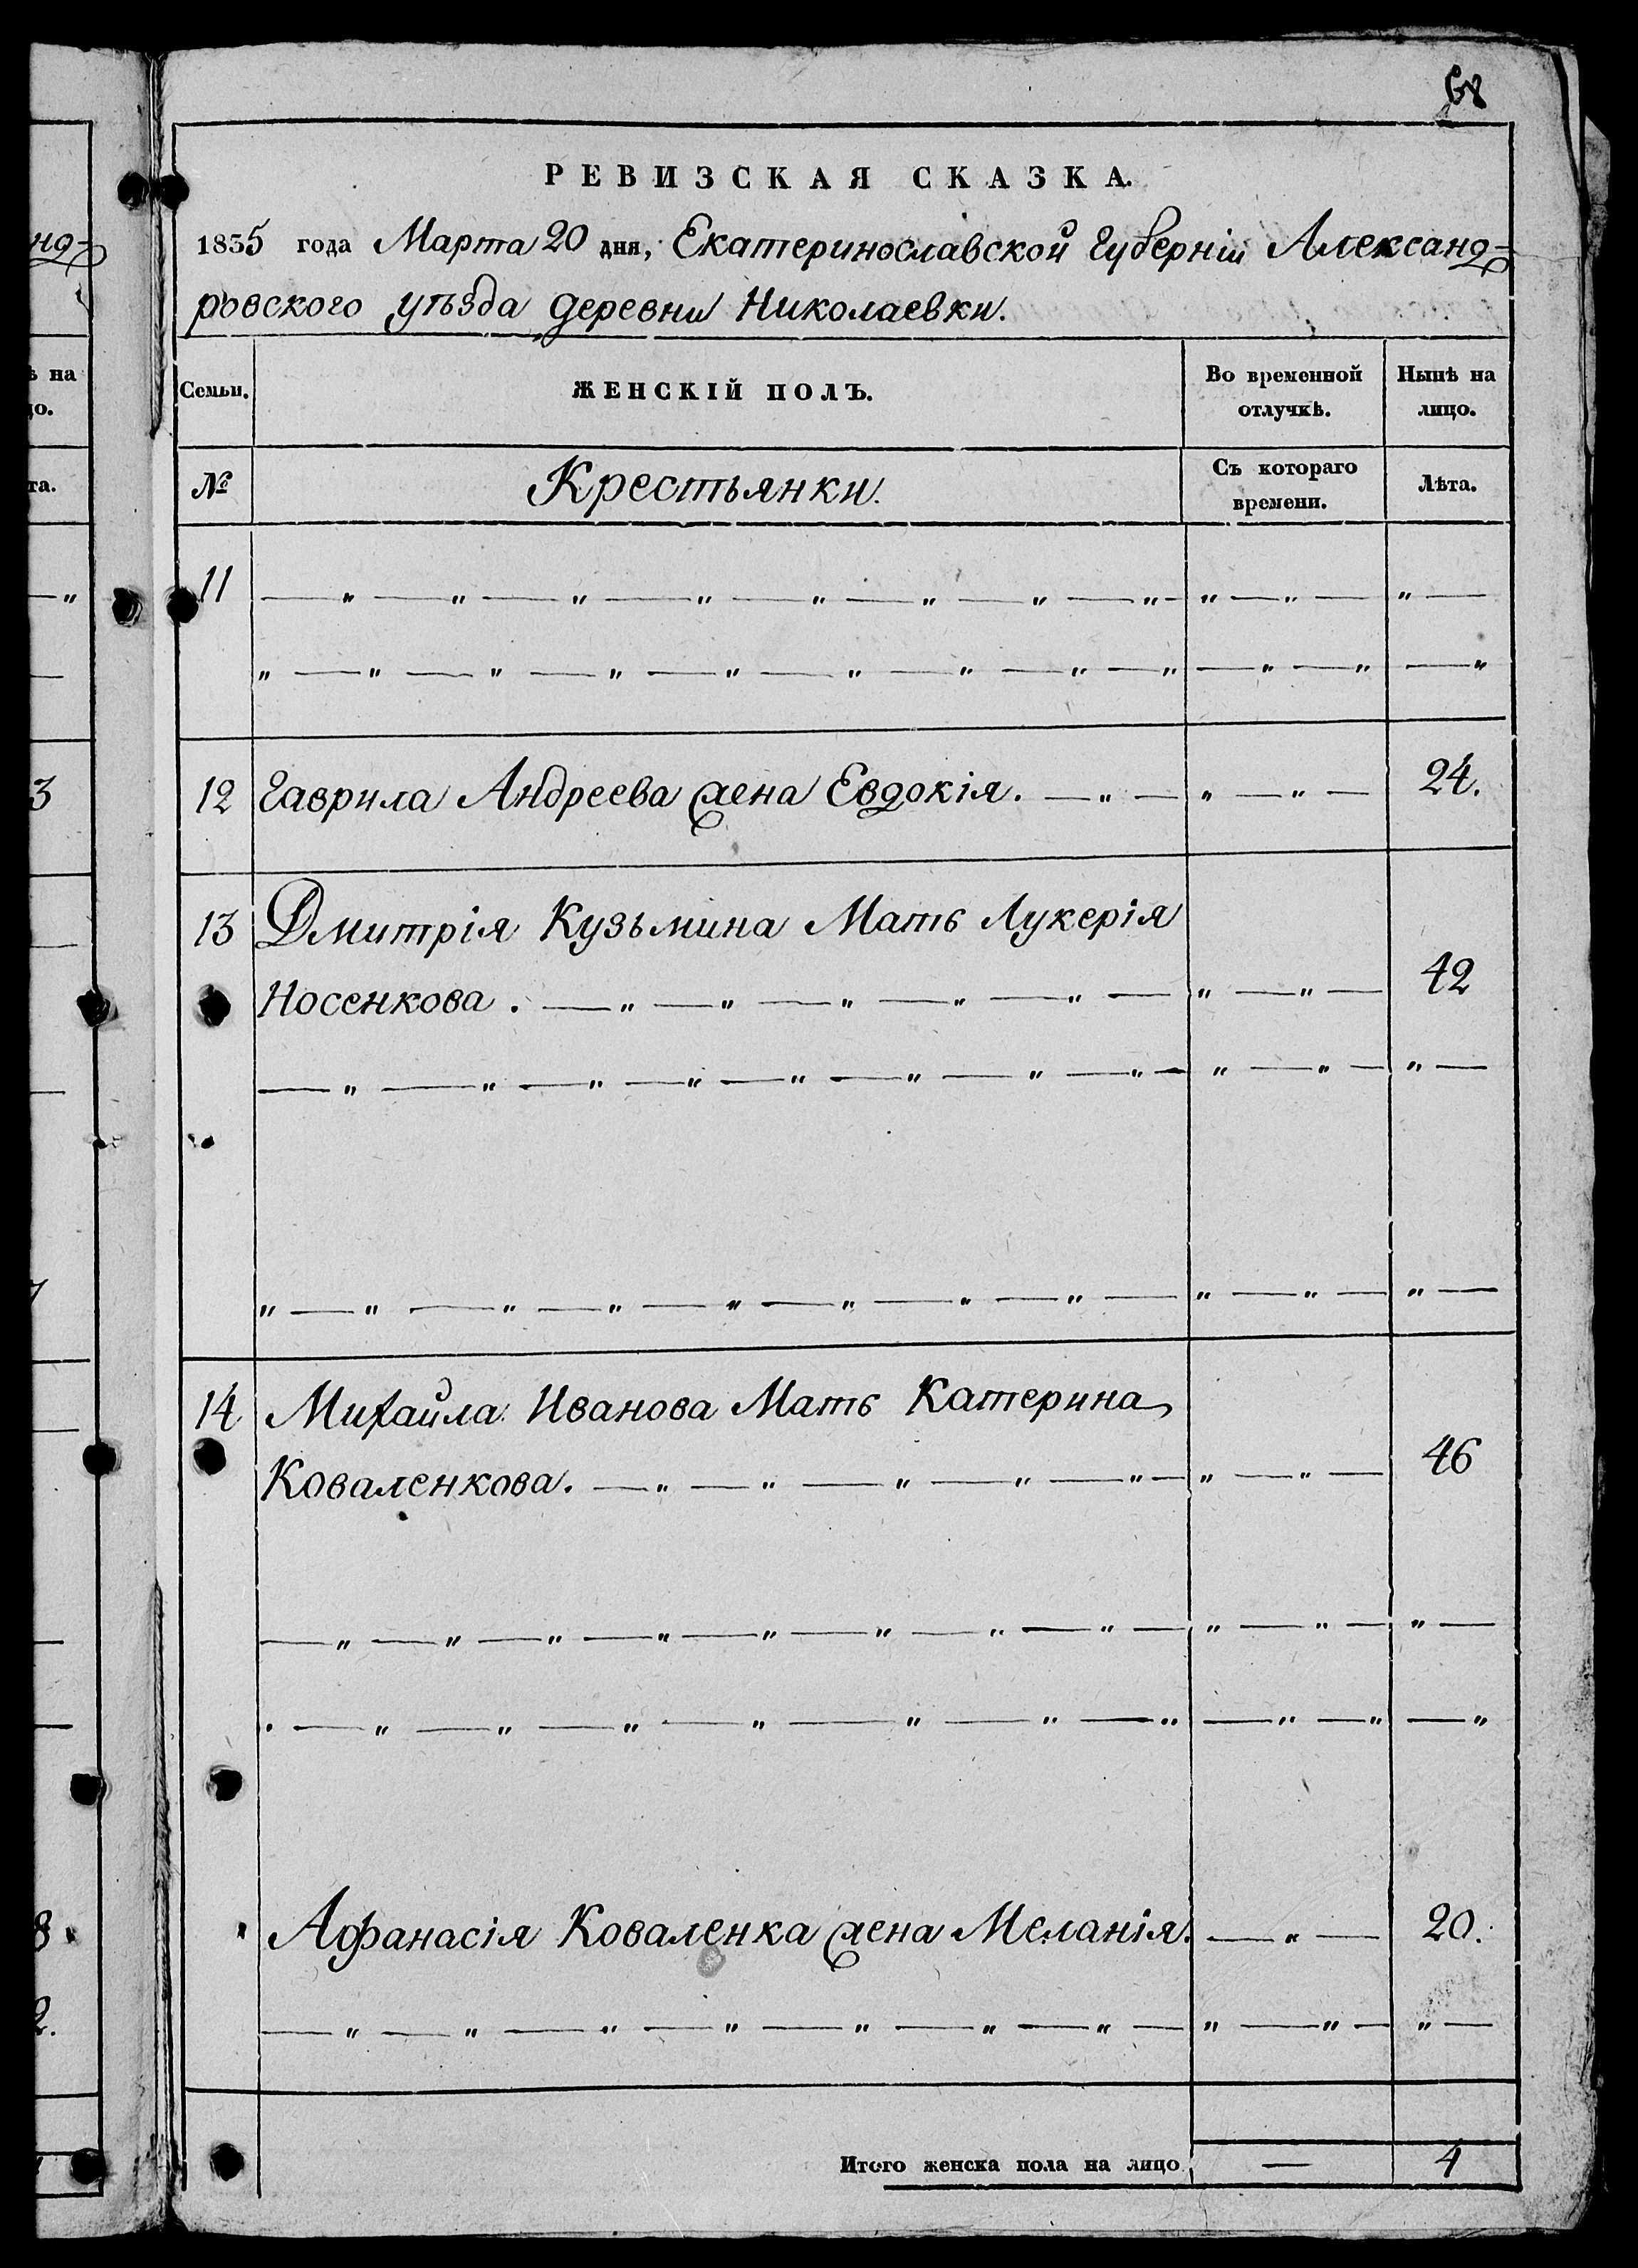 68
РЕВИЗСКАЯ СКАЗКА.
1835 года Марта 20 дня, Екатеринославской Губерніи Александ-
ровского уѣзда деревни Николаевки.
Семьи. ЖЕНСКІЙ ПОЛЪ. Во временной отлучкѣ. Нынѣ на лицо.
№ Крестьянки. Съ котораго времени. Лѣта.
11
12 Гаврила Андреева жена Евдокія. 24.
13 Дмитрія Кузьмина Мать Лукерія
Носенкова. 42
14 Михайла Иванова Мать Катерина
Коваленкова. 46
Афанасія Коваленка жена Меланія. 20.
Итого женска пола на лицо — 4